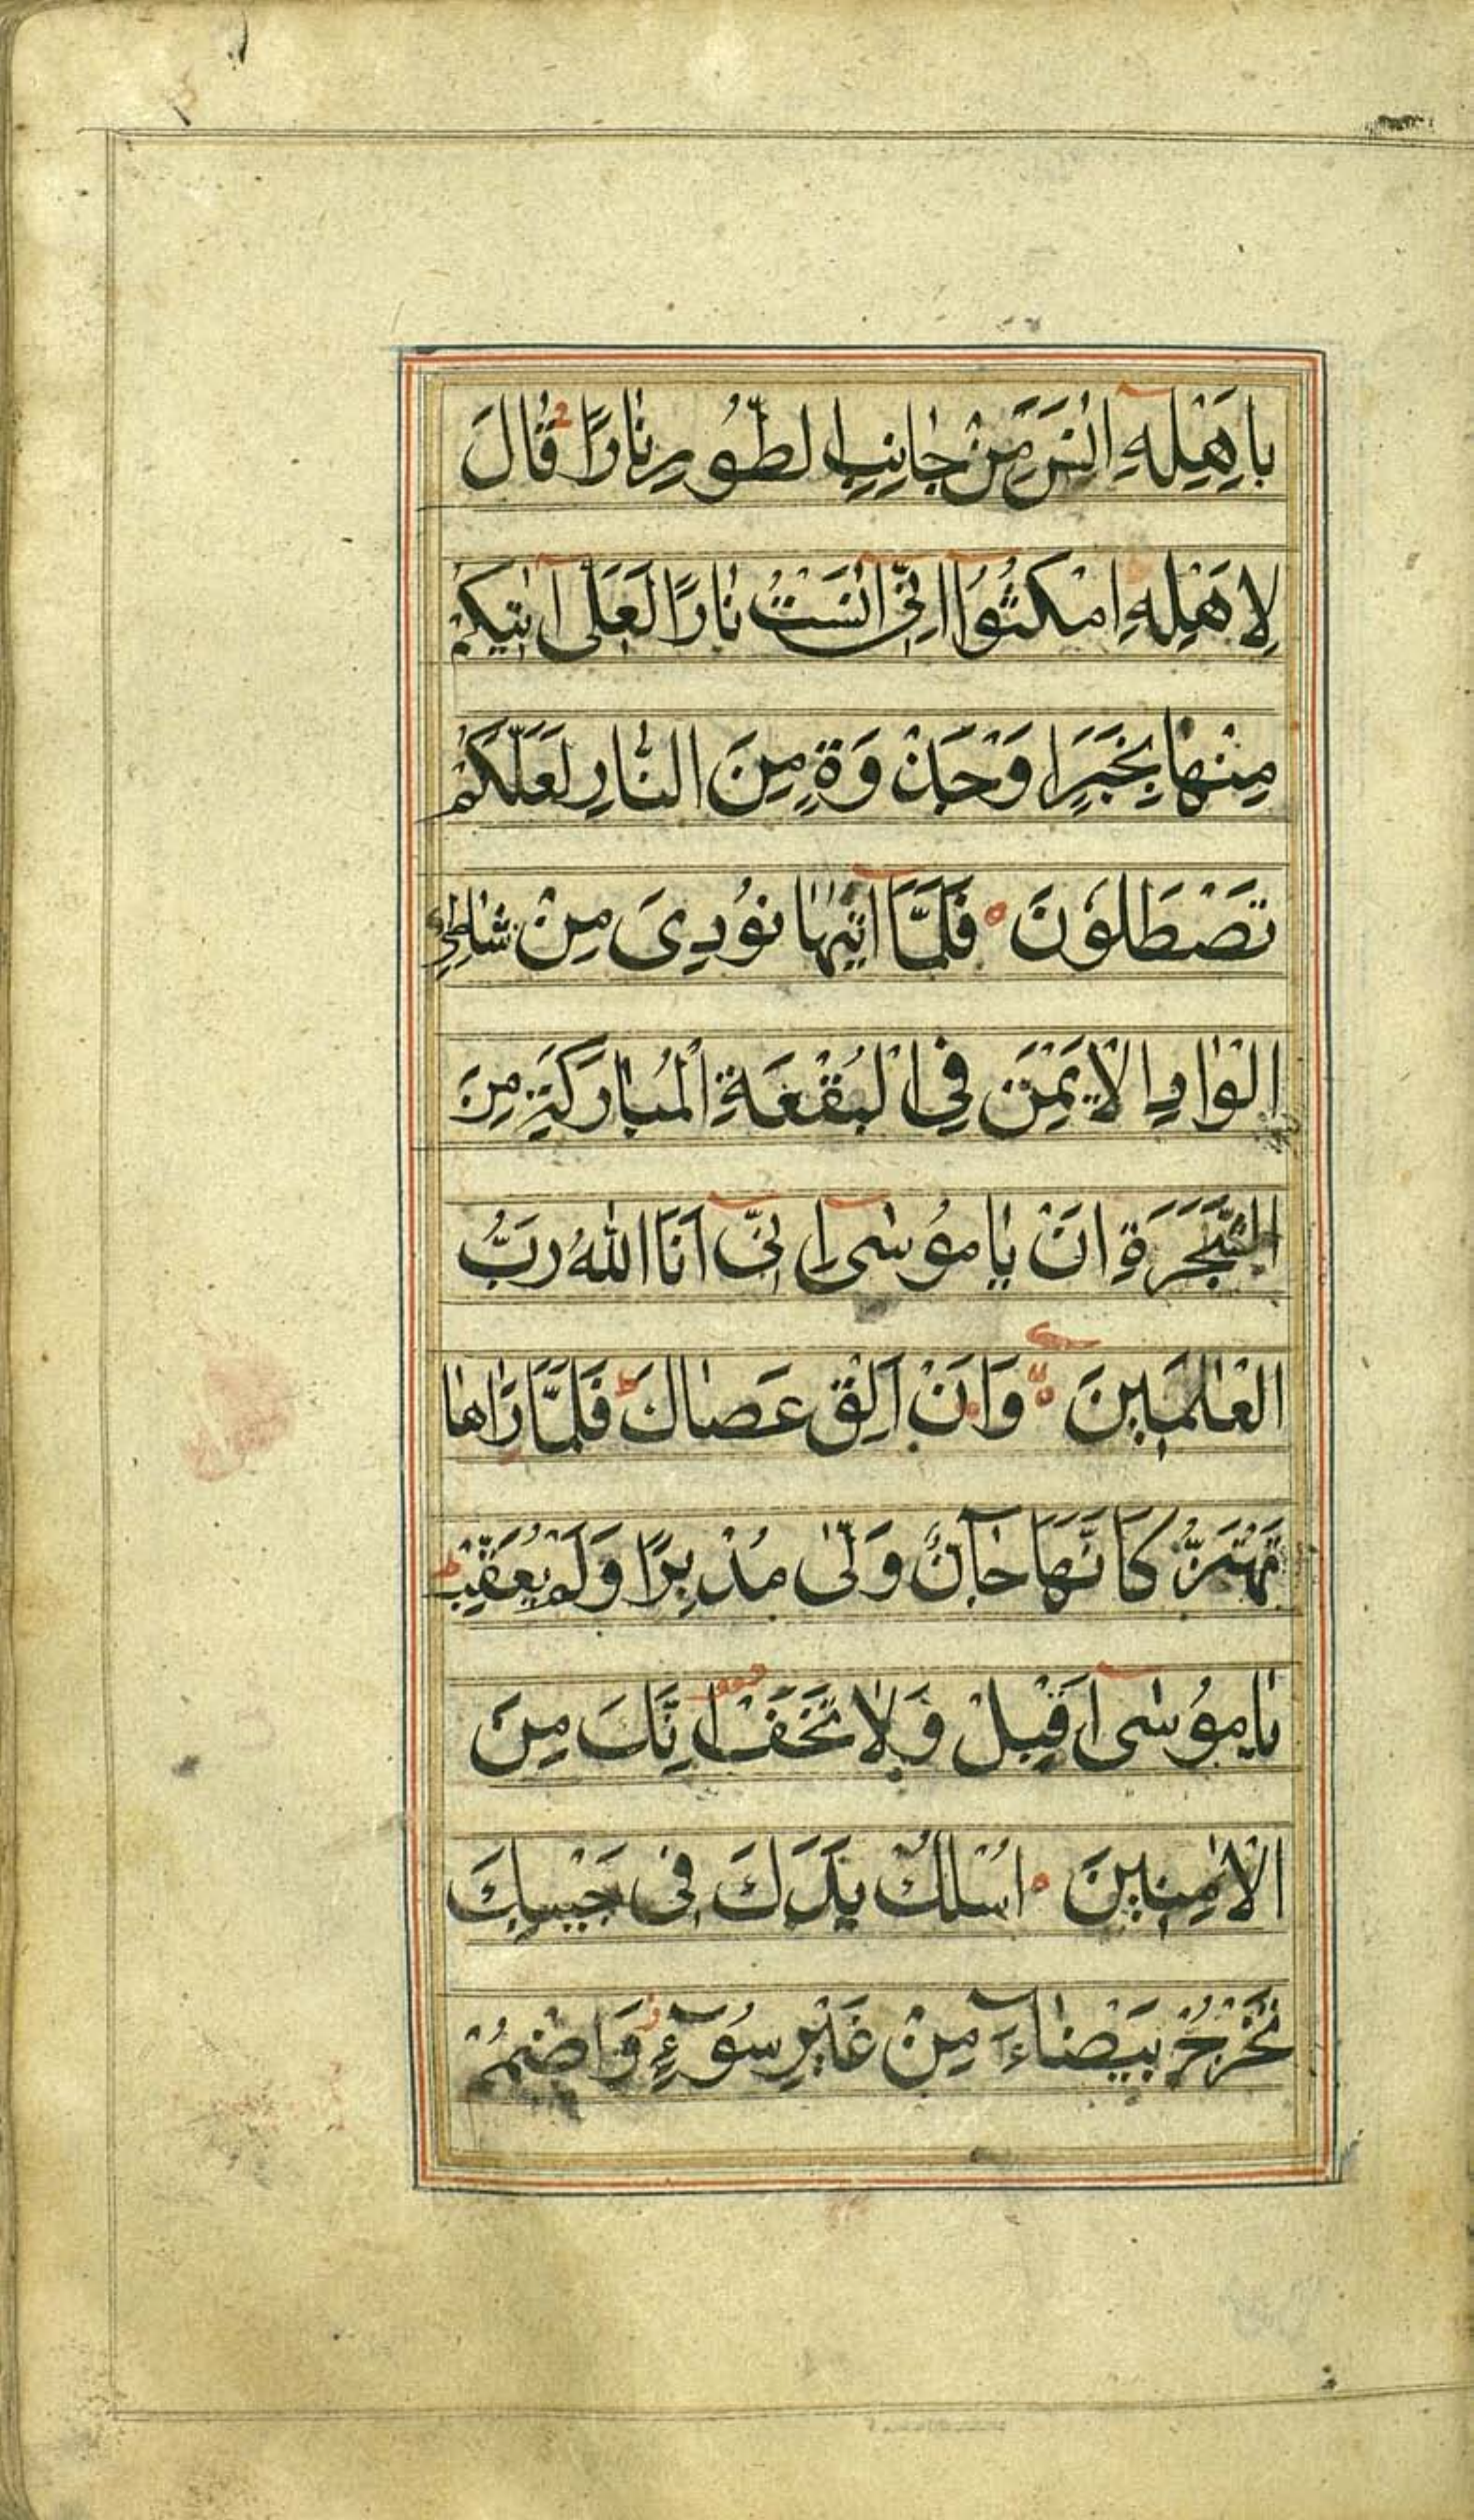 بِاَهْلِهِ اٰنَسَ مِنْ جَانِبِ الطُّورِ نَارًا قَالَ
لِاَهْلِهِ امْكُثُوا اِنِّي اٰنَسْتُ نَارًا لَعَلِّي اٰتِيكُمْ
مِنْهَا بِخَبَرٍ اَوْ جَذْوَةٍ مِنَ النَّارِ لَعَلَّكُمْ
تَصْطَلُونَ فَلَمَّا اَتٰيهَا نُودِيَ مِنْ شَاطِئِ
الْوَادِ الْاَيْمَنِ فِي الْبُقْعَةِ الْمُبَارَكَةِ مِنَ
الشَّجَرَةِ اَنْ يَامُوسٰى اِنِّي اَنَا اللّٰهُ رَبُّ
الْعَالَمِينَ وَاَنْ اَلْقِ عَصَاكَ فَلَمَّا رَاٰهَا
تَهْتَزُّ كَاَنَّهَا جَانٌّ وَلّٰى مُدْبِرًا وَلَمْ يُعَقِّبْ
يَامُوسٰى اَقْبِلْ وَلَا تَخَفْ اِنَّكَ مِنَ
الْاٰمِنِينَ اُسْلُكْ يَدَكَ فِي جَيْبِكَ
تَخْرُجْ بَيْضَاءَ مِنْ غَيْرِ سُوءٍ وَاضْمُمْ